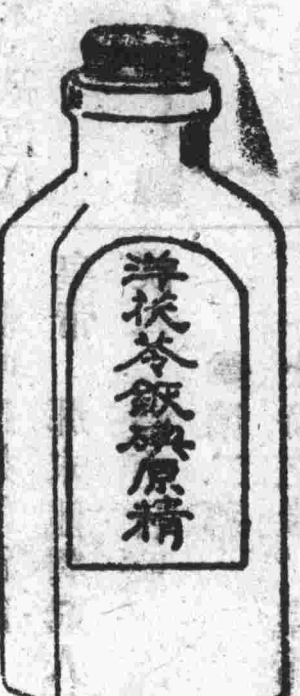 洋茯苓碘原精